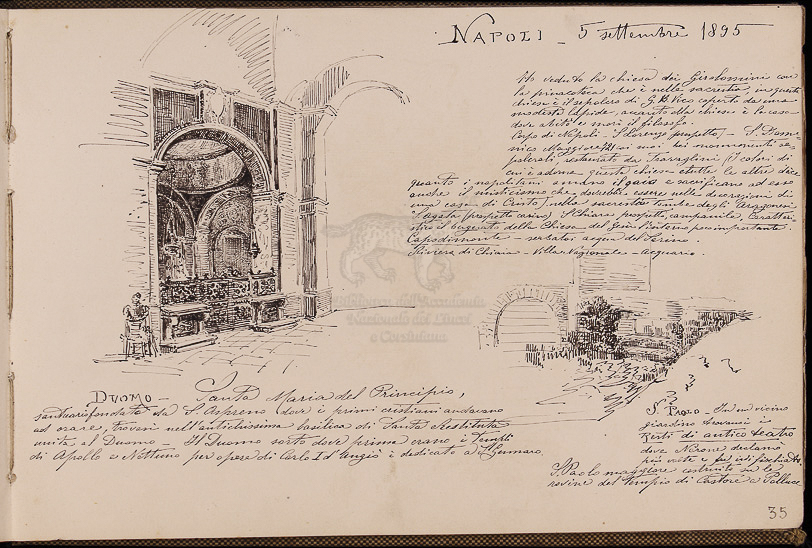 NAPOLI - 5 settembre 1895
Ho veduto la chiesa dei Girolomini con
la pinacoteca che è nella sacrestia, in questa
chiesa è il sepolcro di G. B. Vico coperto da una
modesta lapide, accanto alla chiesa è la casa
dove abitò e morì il filosofo.
Corpo di Napoli - S. Lorenzo (prospetto) - S. Dome
nico Maggiore coi suoi bei monumenti se
polcrali, restaurata da Travaglini (I colori di
cui è adorna questa chiesa e tutte le altre dice
quanto i napolitani amano il gaio e sacrificano ad esso
anche il misticismo che dovrebbe essere nelle decorazioni di
una casa di Cristo) nella sacrestia tombe degli Aragonesi
S. Agata (prospetto arioso) S. Chiara prospetto, campanile, Caratteri
stico il bugnato della Chiesa del Gesù l'interno poco importante
Capodimonte - serbatoi acqua del Serino.
Riviera di Chiaia - Villa Nazionale - Acquario.
Biblioteca dell'Accademia
Nazionale dei Lincei
e Corsiniana
DUOMO - Santa Maria del Principio,
santuario fondato da S. Aspreno dove i primi cristiani andavano
ad orare, trovasi nell'antichissima basilica di Santa Restituta
unita al Duomo - Il Duomo sorto dove prima erano i Templi
di Apollo e Nettuno per opera di Carlo I d'Angiò è dedicato a S. Gennaro.
S. PAOLO - In un vicino
giardino trovansi i
Resti di antico teatro
dove Nerone declamò
più volte e fu fischiato
S. Paolo maggiore costruito su le
rovine del Tempio di Castore e Polluce
35